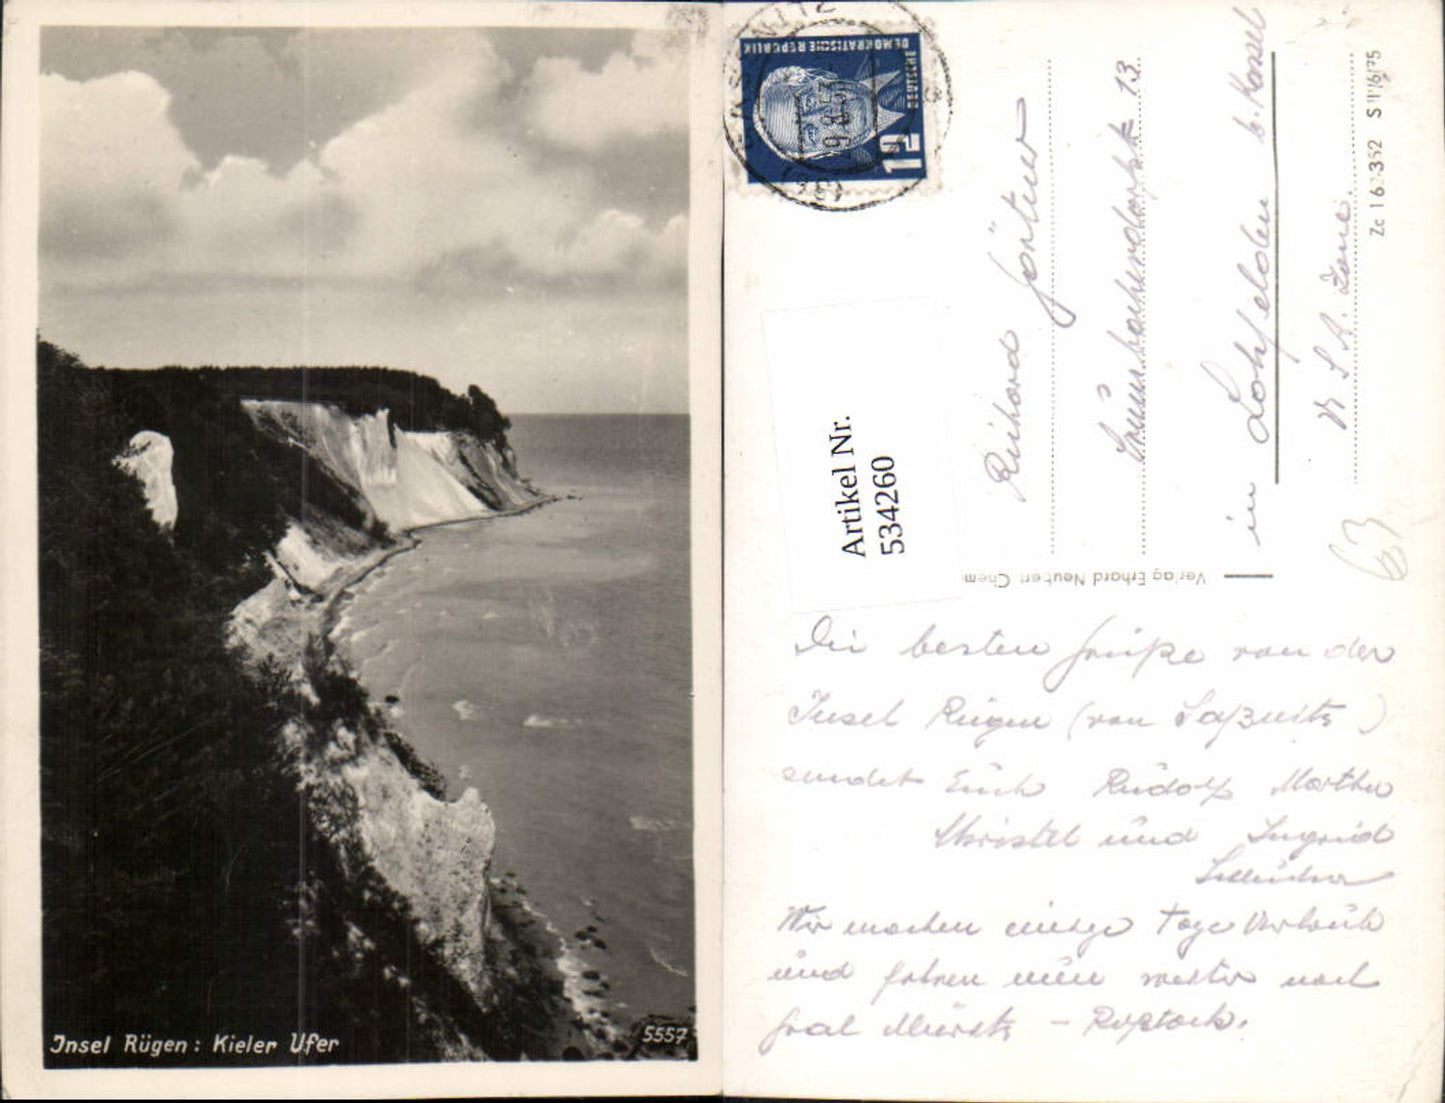 Insel Rügen: Kieler Ufer
5557
DEUTSCHE
DEMOKRATISCHE REPUBLIK
12
Artikel Nr.
534260
Verlag Erhard Neubert Chem
Zc 16 352 S
13.
in Lohfelden b. Kassel
63
Die besten Grüße von der
Insel Rügen (von Saßnitz)
sendet Euch Rudolf Martha
Christel und Ingrid
Wir machen einige Tage Urlaub
und fahren nun weiter nach
Graal Müritz - Rostock.